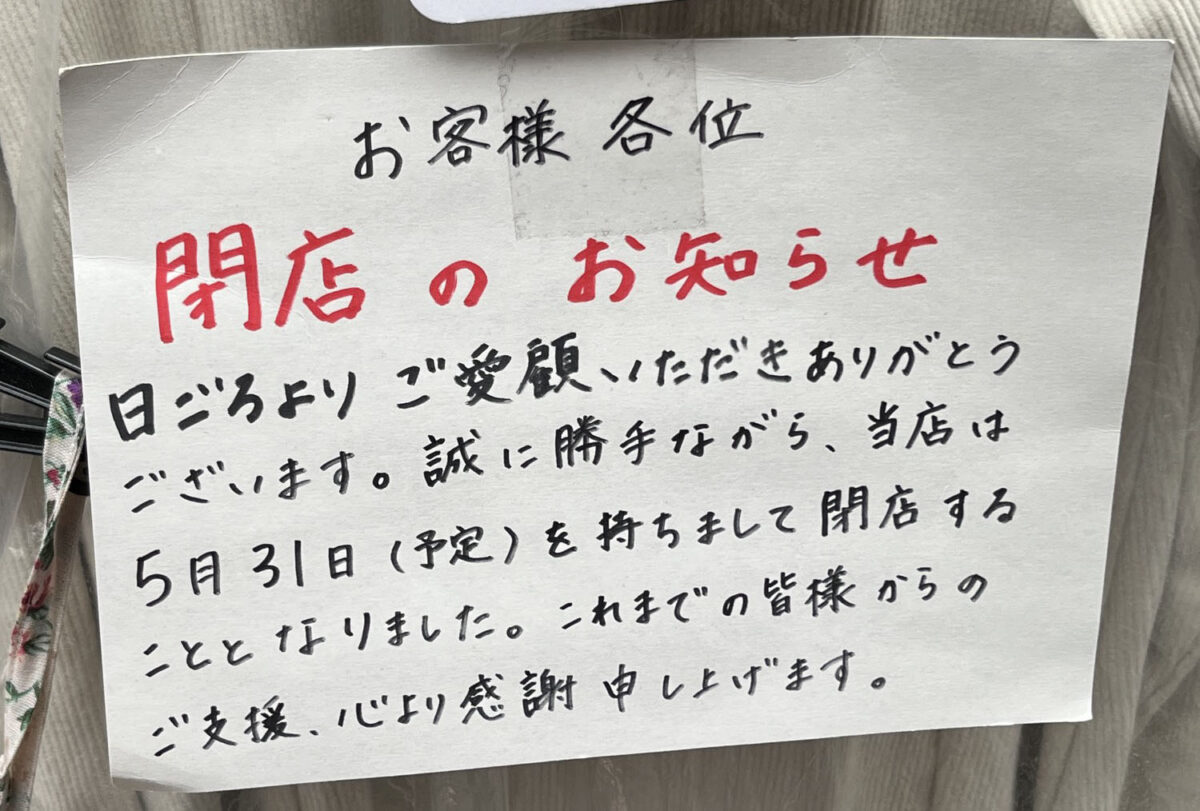 お客様 各位
閉店のお知らせ
日ごろより ご愛顧いただきありがとう
ございます。誠に勝手ながら、当店は
5月31日(予定)を持ちまして閉店する
こととなりました。これまでの皆様からの
ご支援、心より感謝申し上げます。